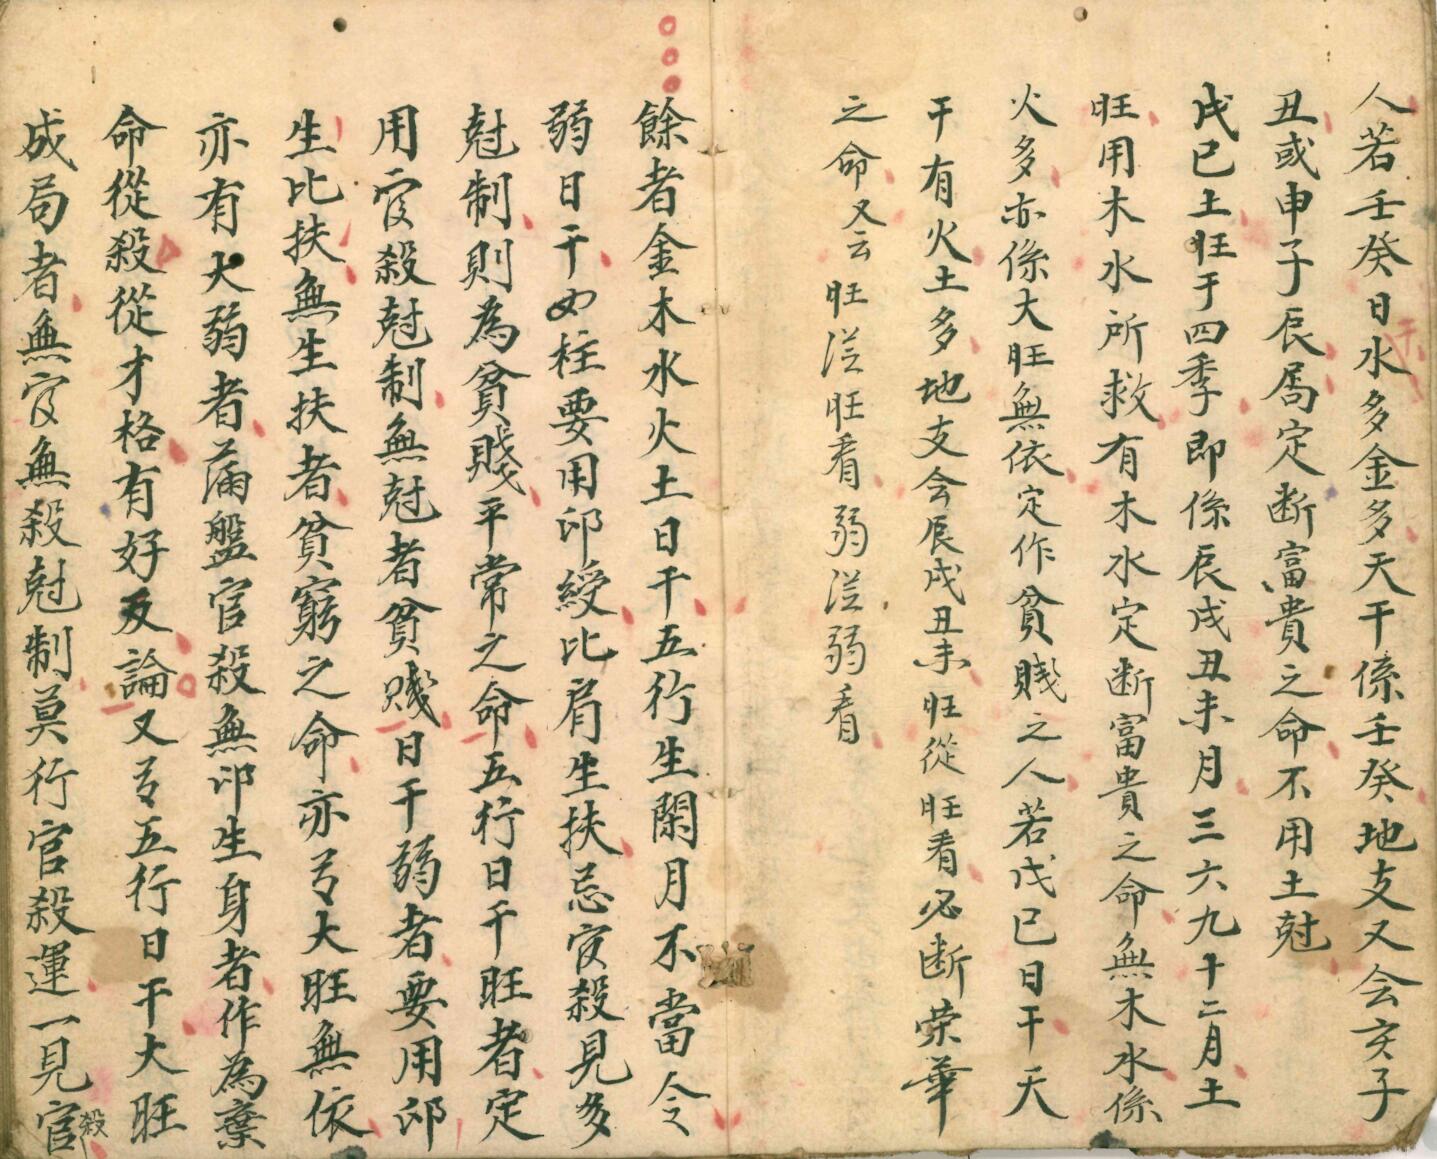 人若壬癸日水多金多天干係壬癸地支又会亥子
丑或申子辰局定断富貴之命不用土尅
戊己土旺于四季即係辰戌丑未月三六九十二月土
旺用木水所救有木水定断富貴之命無木水係
火多亦係大旺無依定作貧賤之人若戊己日干天
干有火土多地支会辰戌丑未旺從旺看必断荣華
之命又云旺從旺看弱從弱看
餘者金木水火土日干五行生閑月不當令
弱日干四柱要用印綬比肩生扶忌官殺見多
尅制則為貧賤平常之命五行日干旺者定
用官殺尅制無尅者貧賤日干弱者要用印
生比扶無生扶者貧窮之命亦有大旺無依
亦有大弱者滿盤官殺無印生身者作為棄
命從殺從才格有好反論又有五行日干大旺
成局者無官無殺尅制莫行官殺運一見官殺